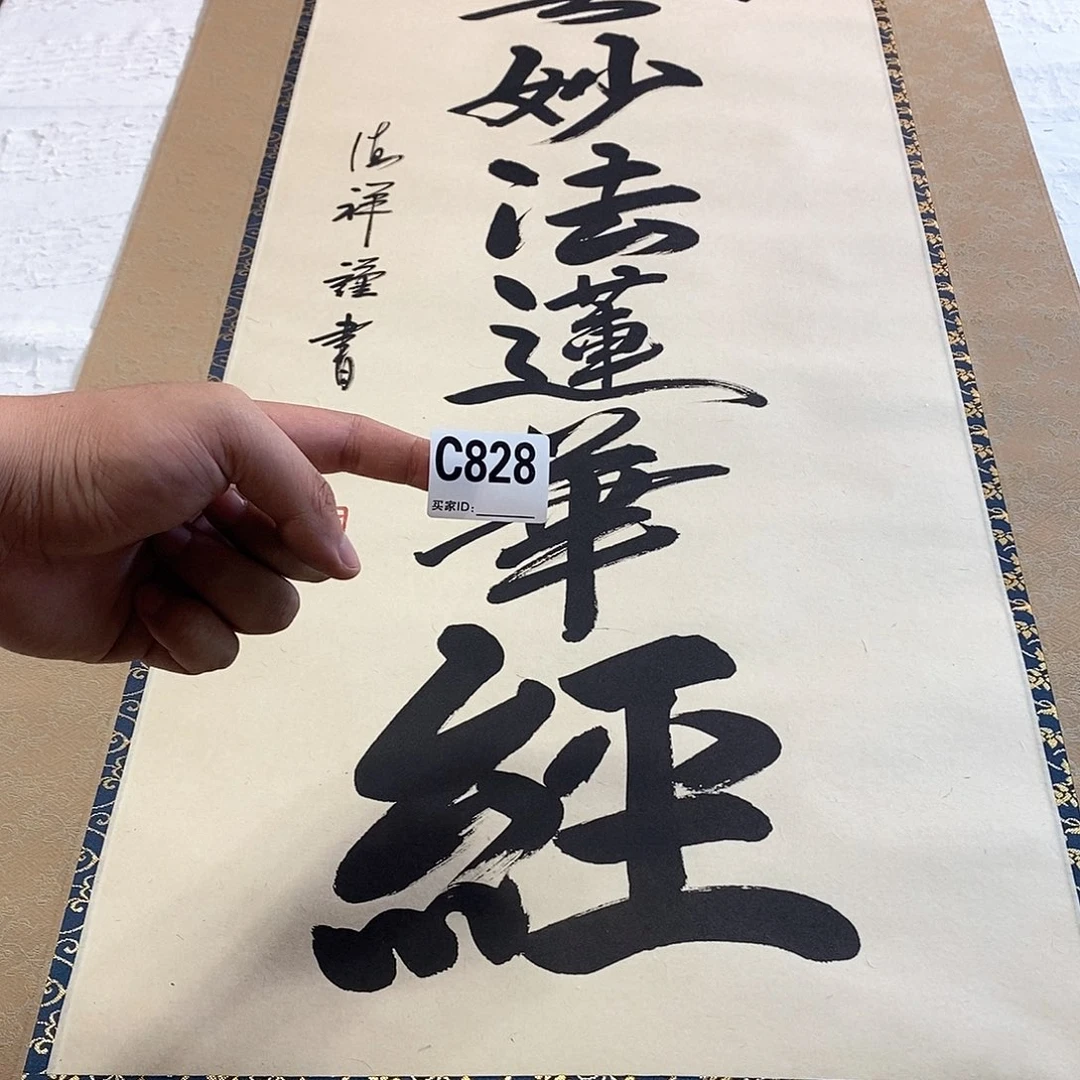 妙法蓮華經
祥謹書
C828
买家ID: